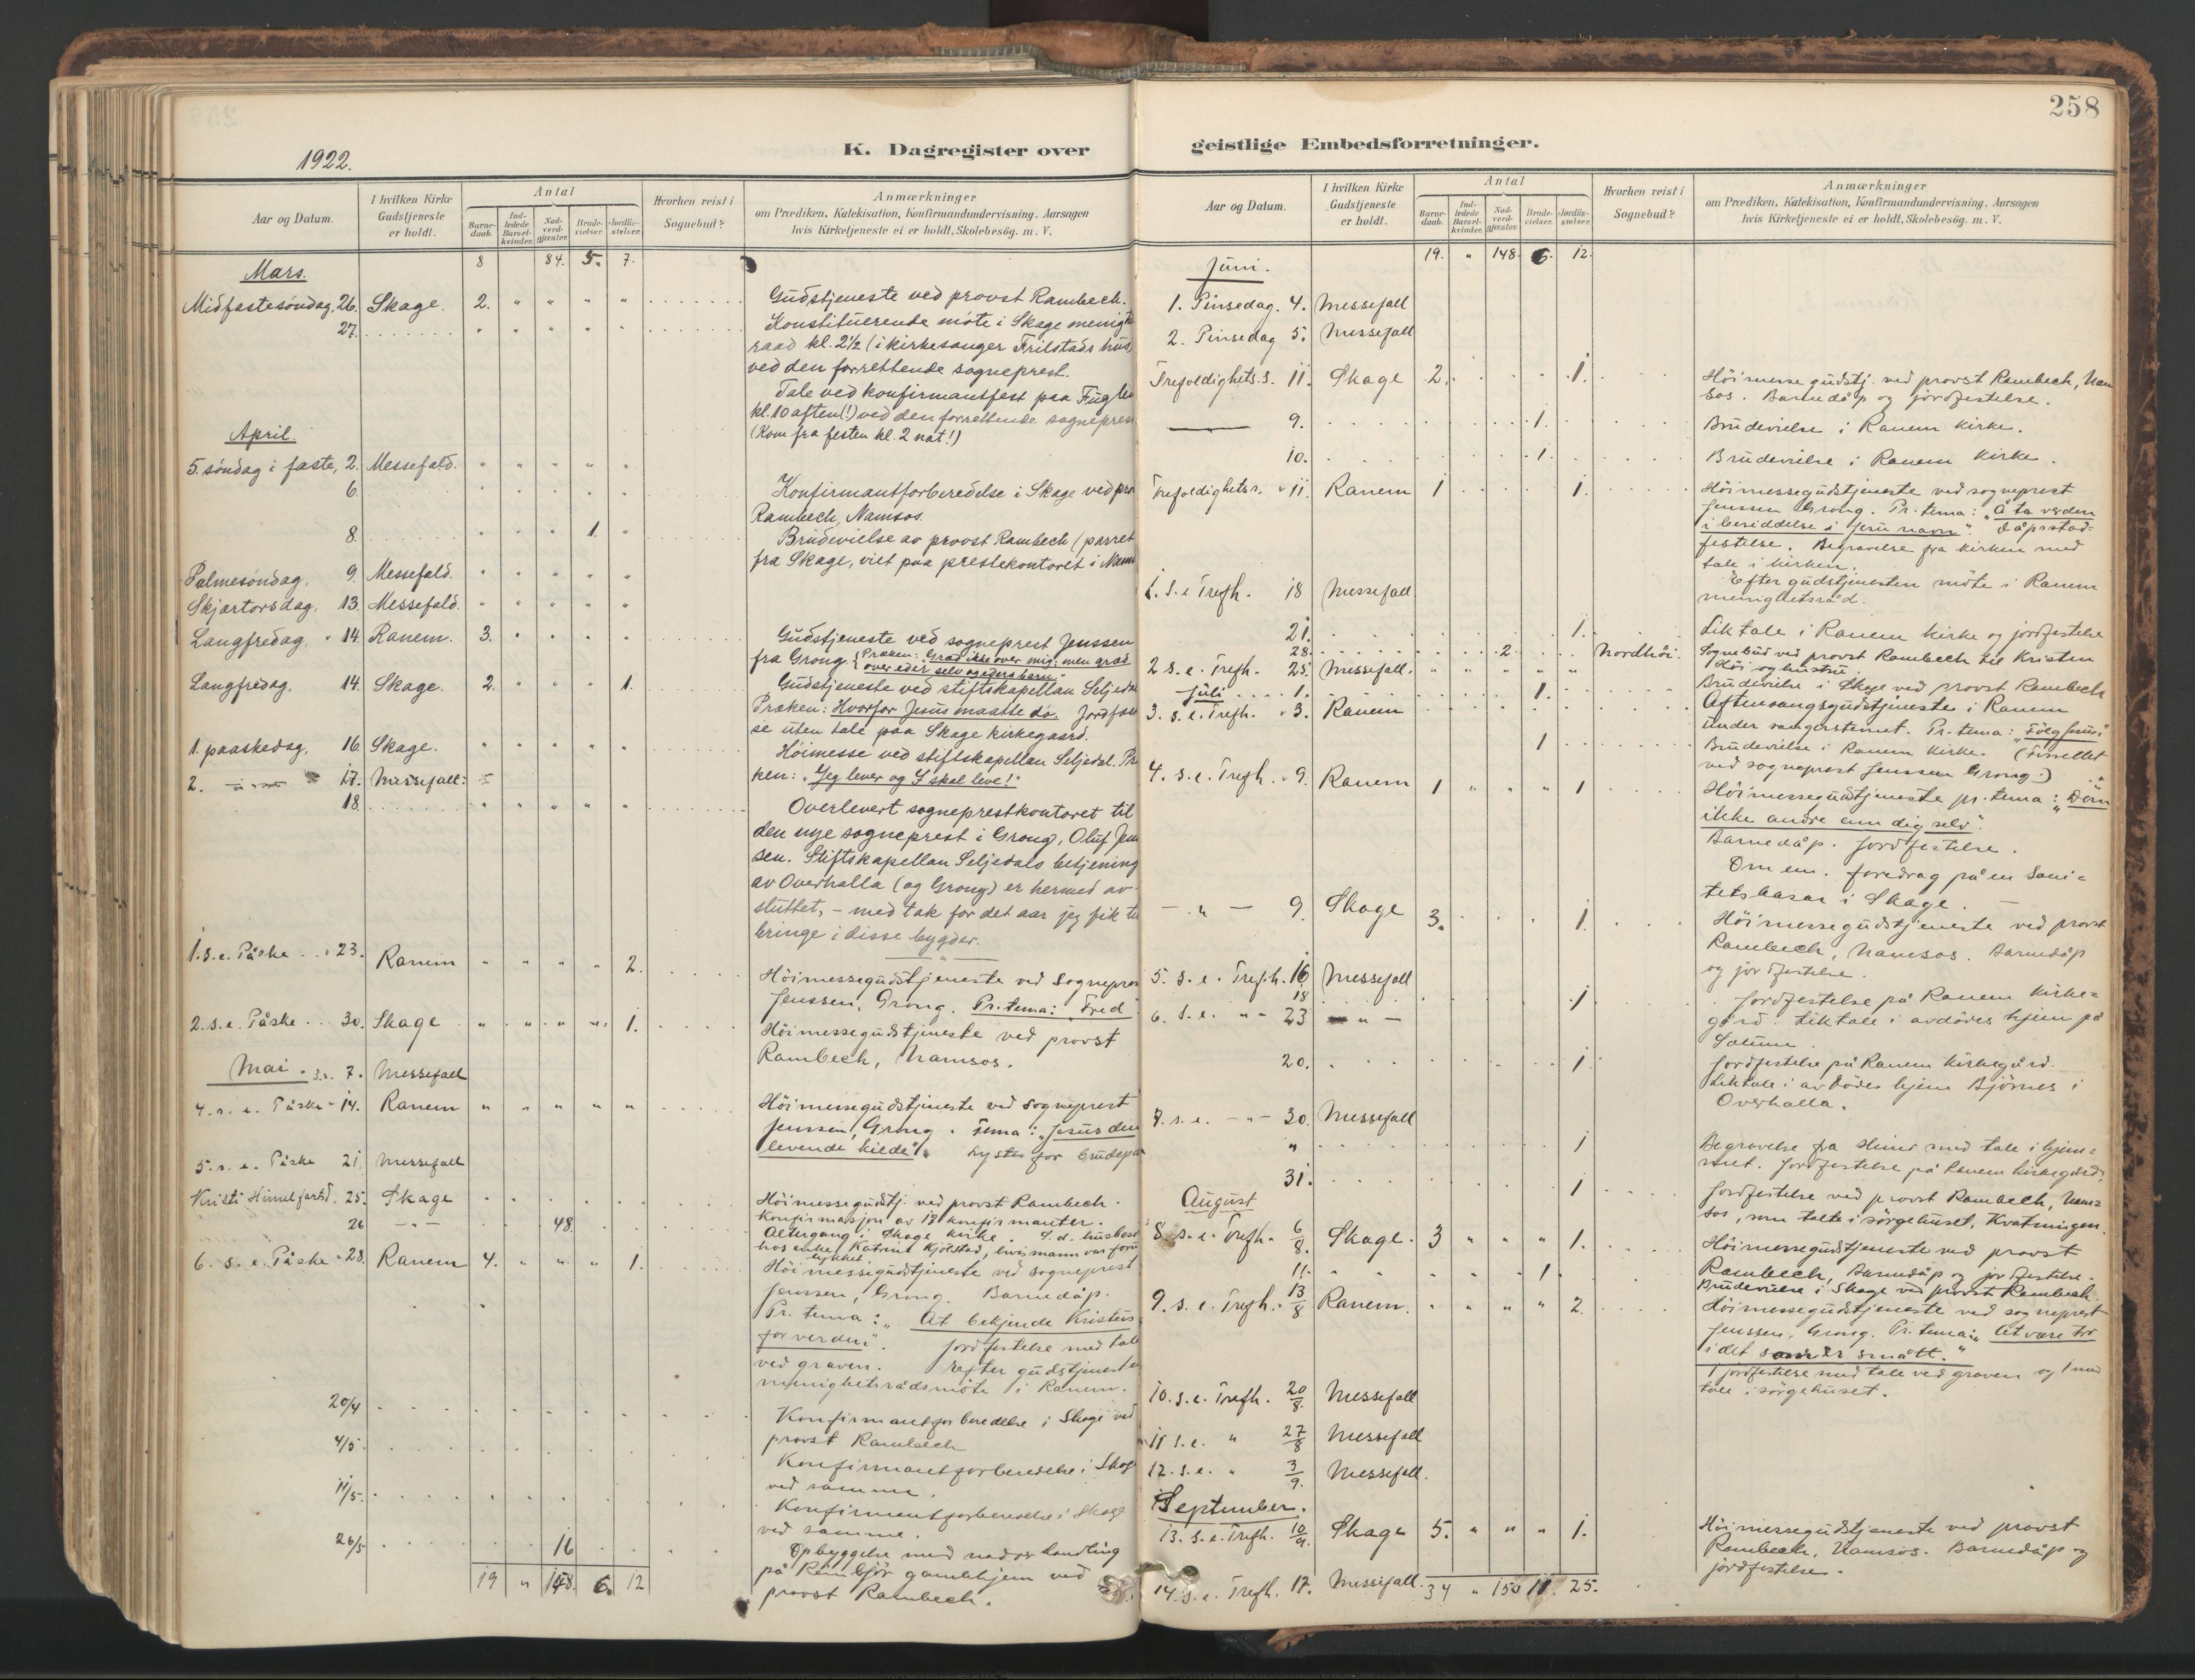 258
1922.
K. Dagregister over
geistlige Embedsforretninger.
Aar og Datum.
I hvilken Kirke Gudstjeneste er holdt.
Antal
Barnedaab.
Indledede Barselkvinder.
Nadverdgjæster.
Brudevielser.
Jordfæstelser.
Hvorhen reist i Sognebud?
Anmærkninger
om Prædiken, Katekisation, Konfirmandundervisning. Aarsagen
hvis Kirketjeneste ei er holdt, Skolebesög. m. V.
8 84. 5. 7.
Mars.
Midfastesöndag, 26. Skage. 2. " " " " Gudstjeneste ved provst Rambech.
27. Konstituerende möte i Skage menigh
raad kl. 2½ (i kirkesanger Frilstads hus)
ved den forrettende sogneprest.
Tale ved konfirmantfest paa
kl. 10 aften(!) ved den forrettende sogneprest
(Kom fra festen kl. 2 nat!)
April.
5. söndag i faste, 2. Messefald.
6. Konfirmantforberedelse i Skage ved pro
Rambech, Namsos.
8. 1. Brudevielse av provst Rambech (parret
fra Skage, viet paa prestekontoret i Nams
Palmesöndag. 9. Messefald.
Skjærtorsdag. 13. Messefald.
Langfredag. 14. Ranem. 3. Gudstjeneste ved sogneprest Jenssen
fra Grong. Præken: "Graat ikke over mig; men graat
over eder selv og eders barn"
Langfredag. 14. Skage. 2. 1. Gudstjeneste ved stiftskapellan Seljedal
Præken: Hvorfor Jesus maatte dö. Jordfæst
se uten tale paa Skage kirkegaard.
1. paaskedag. 16. Skage. Höimesse ved stiftskapellan Seljedal. Præ
ken: "Jeg lever og I skal leve!"
2. 17. Messefall:
18. Overlevert sogneprestkontoret til
den nye sogneprest i Grong, Oluf Jens
sen. Stiftskapellan Seljedals betjening
av Overhalla (og Grong) er hermed av-
sluttet, - med tak for det aar jeg fik til
bringe i disse bygder.
1. s. e. Påske 23. Ranem 2. Höimessegudstjeneste ved Sogneprest
Jenssen, Grong. Pr. tema: "Fred"
2. s. e. Påske 30. Skage 1. Höimessegudstjeneste ved provst
Rambech, Namsos.
Mai. 3. s. 7. Messefall
4. s. e. Påske 14. Ranem Höimessegudstjeneste ved Sogneprest
Jenssen, Grong. Tema: "Jesus den
levende kilde". Lystes for brudepar
5. s. e. Påske 21. Messefall
Kristi Himmelfartsd. 25. Skage Höimessegudstj. ved provst Rambech.
Konfirmasjon av 12 konfirmanter.
26 48. Altergang i Skage kirke. S.d. husbesök
hos enke Katrine Kjölstad, hvis mann var foru
lykket.
6. s. e. Påske 28. Ranem 4. 1. Höimessegudstjeneste ved sogneprest
Jenssen, Grong. Barnedåp.
Pr. tema: "At bekjende Kristus
for verden". Jordfestelse med tale
ved graven. Efter gudstjenesten
menighetsrådsmöte i Ranem.
20/4 Konfirmantforberedelse i Skage ved
provst Rambech
4/5. Konfirmantforberedelse i Skage
ved samme.
11/5. Konfirmantforberedelse i Skage
ved samme.
26/5 16 Opbyggelse med nadverhandling
på gamlehjem ved
provst Rambech.
19 " 148. 6. 12
Aar og Datum.
I hvilken Kirke Gudstjeneste er holdt.
Antal
Barnedaab.
Indledede Barselkvinder.
Nadverdgjæster.
Brudevielser.
Jordfæstelser.
Hvorhen reist i Sognebud?
Anmærkninger
om Prædiken, Katekisation, Konfirmandundervisning. Aarsagen
hvis Kirketjeneste ei er holdt, Skolebesög. m. V.
19. " 148. 6. 12.
Juni.
1. Pinsedag. 4. Messefall
2. Pinsedag 5. Messefall
Trefoldighets. s. 11. Skage 2. 1. Höimesse gudstj. ved provst Rambech, Nam
sos. Barnedåp og jordfestelse.
9. 1. Brudevielse i Ranem kirke.
10. 1. Brudevielse i Ranem kirke.
Trefoldighets. 11. Ranem 1 1. Höimessegudstjeneste ved sogneprest
Jenssen Grong. Pr. tema: "Å ta verden
i besiddelse i Jesu navn". Dåpsstad-
festelse. Begravelse fra kirken med
tale i kirken.
Efter gudstjenesten möte i Ranem
menighetsråd.
1. S. e. Trefh. 18 Messefall
21. 1. Liktale i Ranem kirke og jordfestelse
28. 2. Nordhöi. Sognebud ved provst Rambech til Kristen
Höi og hustru.
2 s. e. Trefh. 25. Messefall.
Juli 1. 1. Brudevielse i Skage ved provst Rambech
3. s. e. Trefh. 3. Ranem Aftensangsgudstjeneste i Ranem
under sangerstevnet. Pr. tema: "Fölg Jesus"
1 Brudevielse i Ranem kirke. (Forrettet
ved sogneprest Jenssen Grong.)
4. s. e. Trefh. 9. Ranem 1 " " " 1 Höimessegudstjeneste pr. tema: "Döm
ikke andre enn dig selv".
Barnedåp. Jordfestelse.
Om em. foredrag på en Sani-
tetsbasar i Skage.
— " — 9. Skage 3. 1. Höimessegudstjeneste ved provst
Rambech, Namsos. Barnedåp
og jordfestelse.
5. s. e. Trefh. 16 Messefall
18 1 Jordfestelse på Ranem kirke-
gård. Liktale i avdödes hjem på
6. s. e. " 23 — " —
20. 1. Jordfestelse på Ranem kirkegård.
Liktale i avdödes hjem Björnes i
Overhalla.
7. s. e. — " — 30. Messefall
" 1 Begravelse fra med tale i hjem-
met. Jordfestelse på Ranem kirkegård.
31. 1 Jordfestelse ved provst Rambech, Nam-
sos, som talte i sörgehuset, Kvatningen.
August
8. s. e. Trefh. 6/8. Skage. 3 " " " 1. Höimessegudstjeneste ved provst
Rambech, Barnedåp og jordfestelse.
11. 1. Brudevielse i Skage ved provst Rambech.
9. s. e. Trefh. 13/8 Ranem. 2. Höimessegudstjeneste ved sogneprest
Jenssen, Grong. Pr. tema: "At være tro
i det som er smått."
1 jordfestelse med tale ved graven og 1 med
tale i sörgehuset.
10. s. e. Trefh. 20/8. Messefall
11 s. e. " 27/8 Messefall
12. s. e. " 3/9. Messefall.
September.
13. s. e. Trefh. 10/9. Skage 5. " " " 1. Höimessegudstjeneste ved provst
Rambech, Namsos. Barnedåp og
jordfestelse.
14. s. e. Trefh. 17. Messefall. 34 " 150 11. 25.